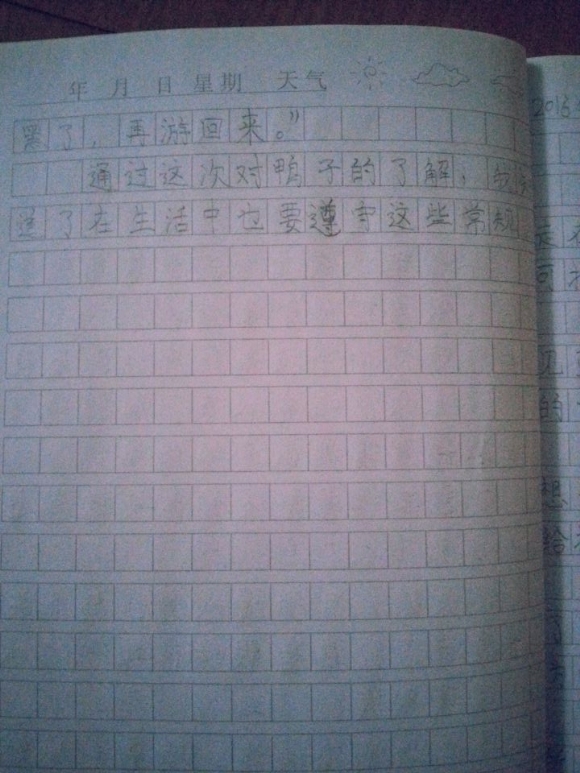 年 月 日 星期 天气
累了，再游回来。”
通过这次对鸭子的了解，我知
道了在生活中也要遵守这些常规
2015
可
见
的
想
给